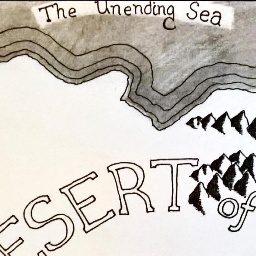 The Unending Sea
ESERT of